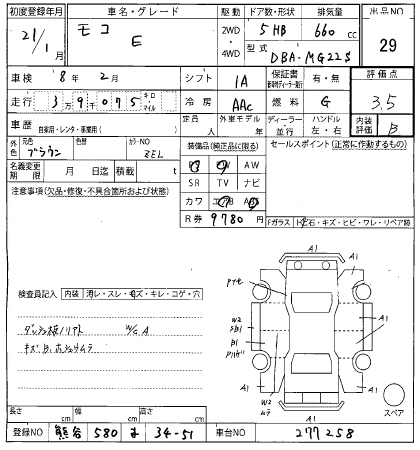 初度登録年月 車名・グレード 駆動 ドア数・形状 排気量 出品NO
21/1月 モコ E 2WD・4WD 5HB 660cc 29
型式 DBA-MG22S
車検 8年 2月 シフト IA 保証書 有・無 評価点
走行 39075 キロ・マイル 冷房 AAC 燃料 G 3.5
車歴 自家用・レンタ・事業用( ) 定員 人 外車モデル 年 ディーラー・並行 ハンドル 左・右 内装評価 B
外色 元色 ブラウン 色替 カラーNO ZEL
装備品(純正品に限る) セールスポイント(正常に作動するもの)
AW
名義変更期限 月 日迄 積載 t
SR TV ナビ
注意事項(欠品・修復・不具合箇所および状態)
カワ
R券 9780円
Fガラス 石・キズ・ヒビ・ワレ・リペア跡
A1
A1
A1
検査員記入 内装 汚レ・スレ・キズ・キレ・コゲ・穴
W2
B1
ダッシュ W/C A
W2
ムラ
A1
A1
A1
A1
スペア
長さ cm 幅 cm 高さ cm
登録NO 熊谷 580 ま 34-51 車台NO 277258